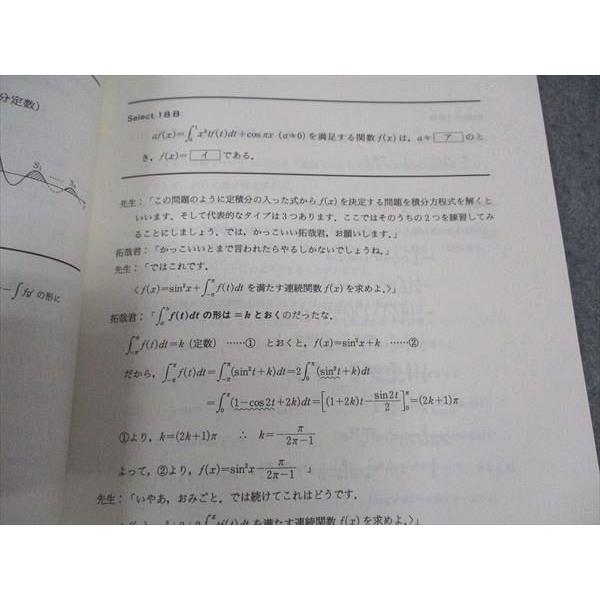 分定数)
S₁
Select 188
af(x)=∫₀¹x²tf(t)dt+cosπx (a≠0) を満足する関数 f(x) は，a≠ ア のと
き，f(x)= イ である．
先生：「この問題のように定積分の入った式から f(x) を決定する問題を積分方程式を解くと
いいます．そして代表的なタイプは3つあります．ここではそのうちの2つを練習してみ
ることにしましょう．では，かっこいい拓哉君，お願いします．」
拓哉君：「かっこいいとまで言われたらやるしかないでしょうね．」
先生：「ではこれです．
〈f(x)=sin²x+∫₋π^π f(t)dt を満たす連続関数 f(x) を求めよ．〉」
−∫fg' の形に
拓哉君：「∫ₐᵇf(t)dt の形は＝k とおくのだったな．
∫₋π^π f(t)dt=k (定数) ……① とおくと，f(x)=sin²x+k ……②
だから，∫₋π^π f(t)dt=∫₋π^π(sin²t+k)dt=2∫₀^π(sin²t+k)dt
=∫₀^π(1−cos2t+2k)dt=[(1+2k)t−sin2t/2]₀^π=(2k+1)π
①より，k=(2k+1)π ∴ k=−π/(2π−1)
よって，②より，f(x)=sin²x−π/(2π−1) 」
先生：「いやあ，おみごと．では続けてこれはどうです．
tf(t)dt を満たす連続関数 f(x) を求めよ．〉」